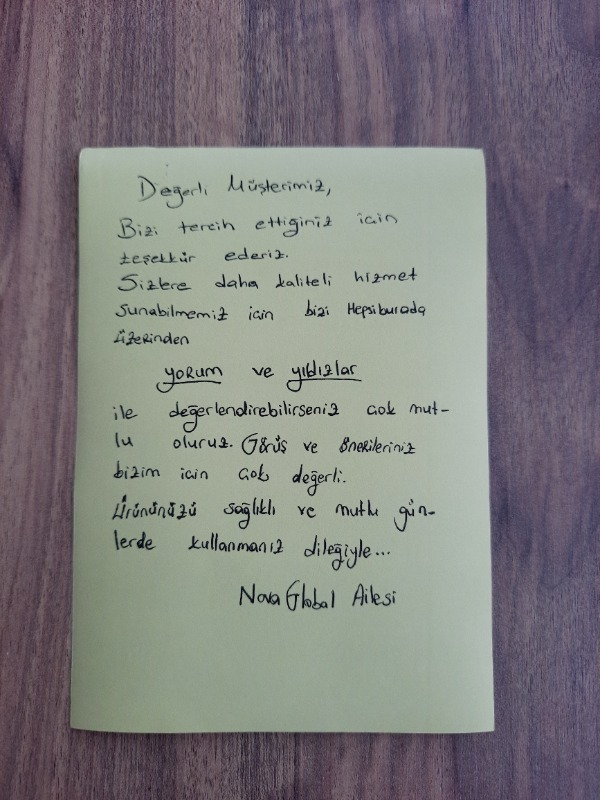 Değerli Müşterimiz,
Bizi tercih ettiğiniz için
teşekkür ederiz.
Sizlere daha kaliteli hizmet
sunabilmemiz için bizi Hepsiburada
üzerinden
yorum ve yıldızlar
ile değerlendirebilirseniz çok mut-
lu oluruz. Görüş ve önerileriniz
bizim için çok değerli.
Ürününüzü sağlıklı ve mutlu gün-
lerde kullanmanız dileğiyle...
Nova Global Ailesi